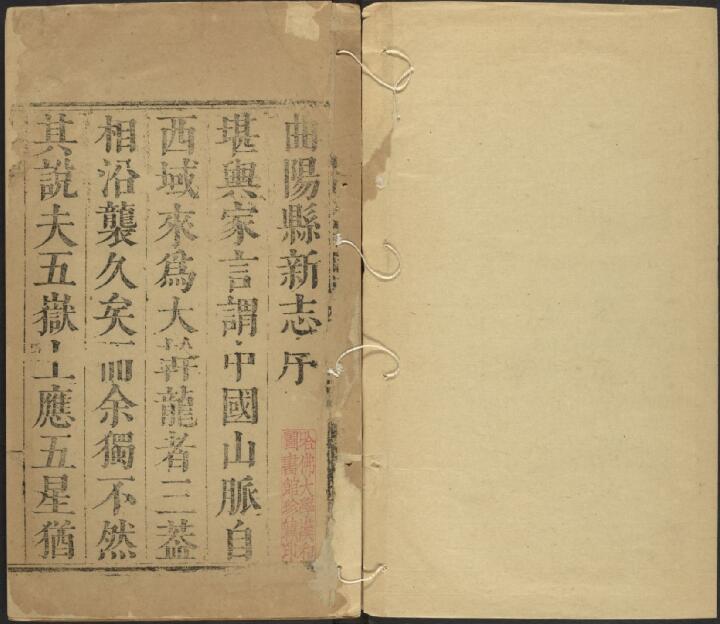 曲陽縣新志序
堪輿家言謂中國山脈自
西域來爲大幹龍者三蓋
相沿襲久矣而余獨不然
其說夫五嶽上應五星猶
哈佛大學漢和
圖書館珍藏印